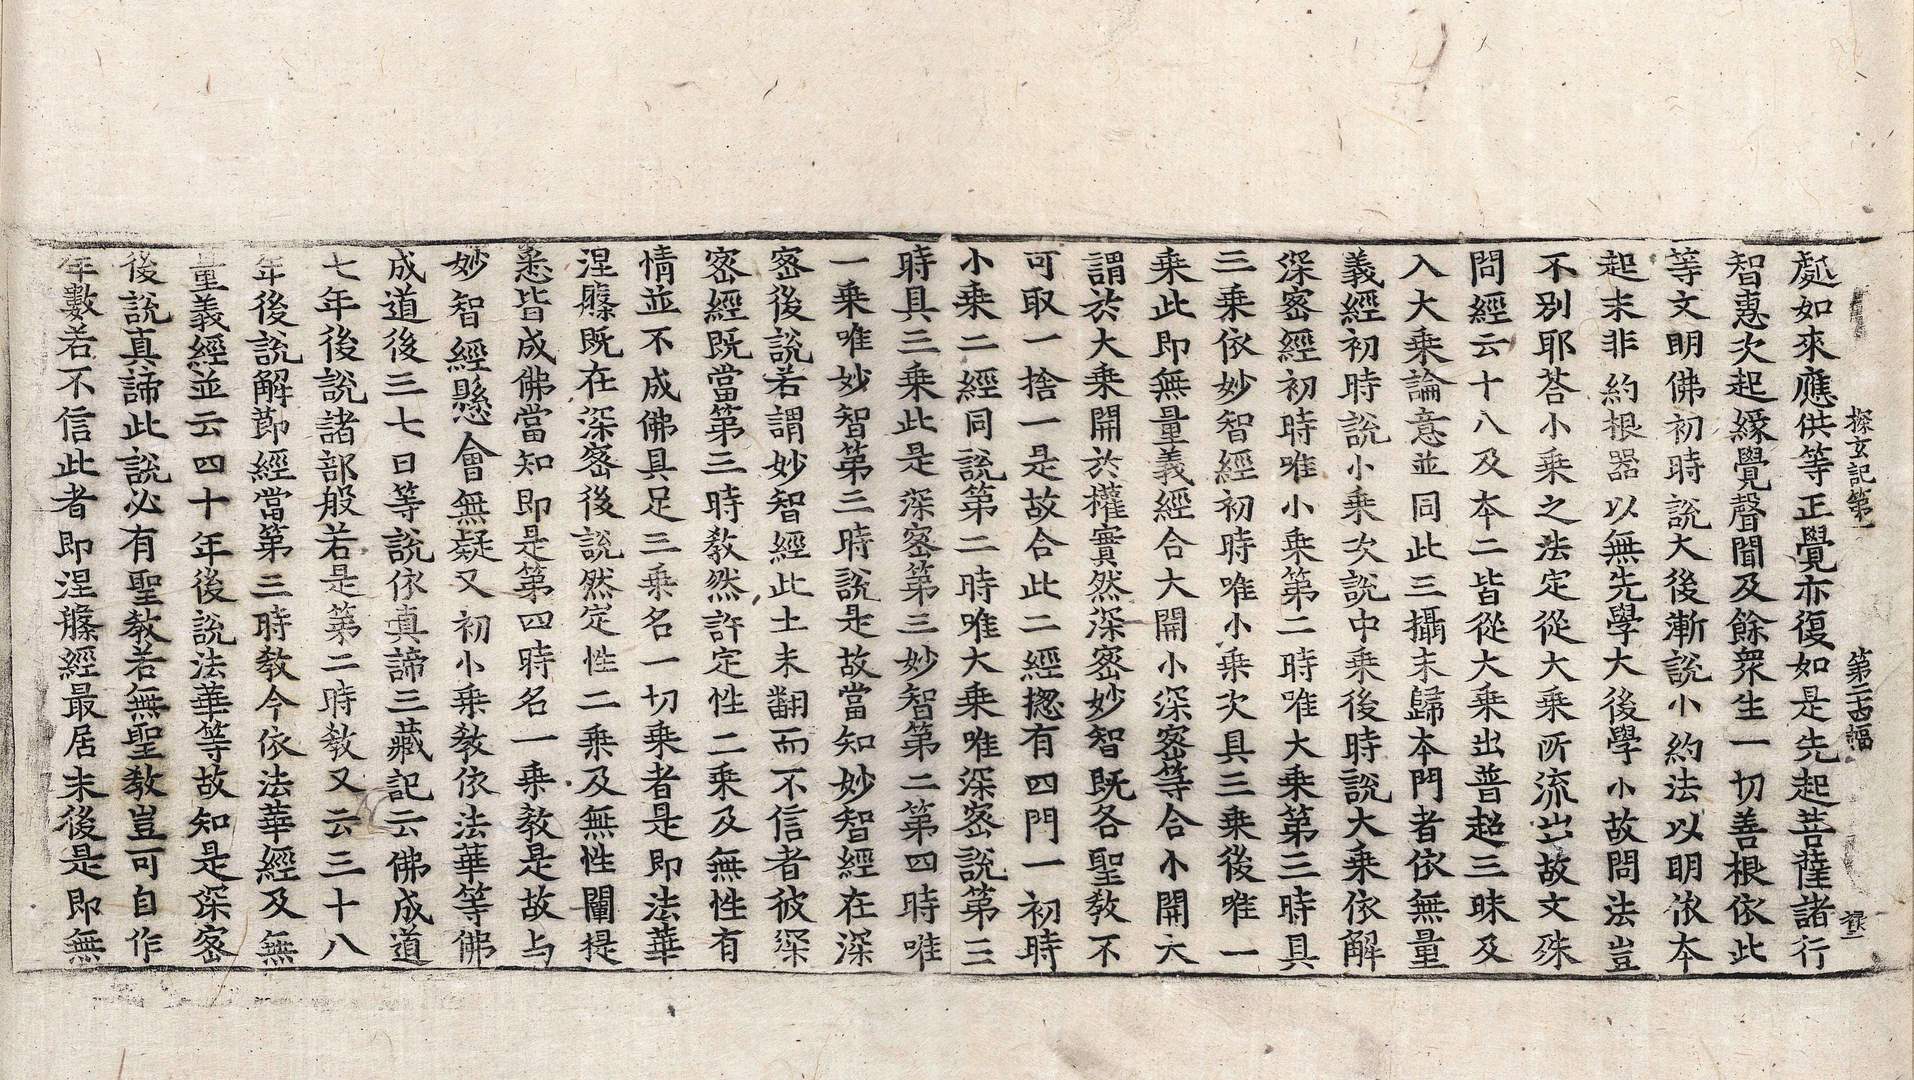 探玄記第一 第二古幅 祿二
處如來應供等正覺亦復如是先起菩薩諸行
智惠次起緣覺聲聞及餘衆生一切善根依此
等文明佛初時說大後漸說小約法以明依本
起末非約根器以無先學大後學小故問法豈
不別耶荅小乘之法定從大乘所流出故文殊
問經云十八及本二皆從大乘出普超三昧及
入大乘論意並同此三攝末歸本門者依無量
義經初時說小乘次說中乘後時說大乘依解
深密經初時唯小乘第二時唯大乘第三時具
三乘依妙智經初時唯小乘次具三乘後唯一
乘此即無量義經合大開小深密等合小開大
謂於大乘開於權實然深密妙智既各聖敎不
可取一捨一是故合此二經揔有四門一初時
小乘二經同說第二時唯大乘唯深密說第三
時具三乘此是深密第三妙智第二第四時唯
一乘唯妙智第三時說是故當知妙智經在深
密後說若謂妙智經此土未翻而不信者彼深
密經既當第三時敎然許定性二乘及無性有
情並不成佛具足三乘名一切乘者是即法華
涅槃既在深密後說然定性二乘及無性闡提
悉皆成佛當知即是第四時名一乘敎是故与
妙智經懸會無疑又初小乘敎依法華等佛
成道後三七日等說依真諦三藏記云佛成道
七年後說諸部般若是第二時敎又云三十八
年後說解節經當第三時敎今依法華經及無
量義經並云四十年後說法華等故知是深密
後說真諦此說必有聖敎若無聖敎豈可自作
年數若不信此者即涅槃經最居末後是即無